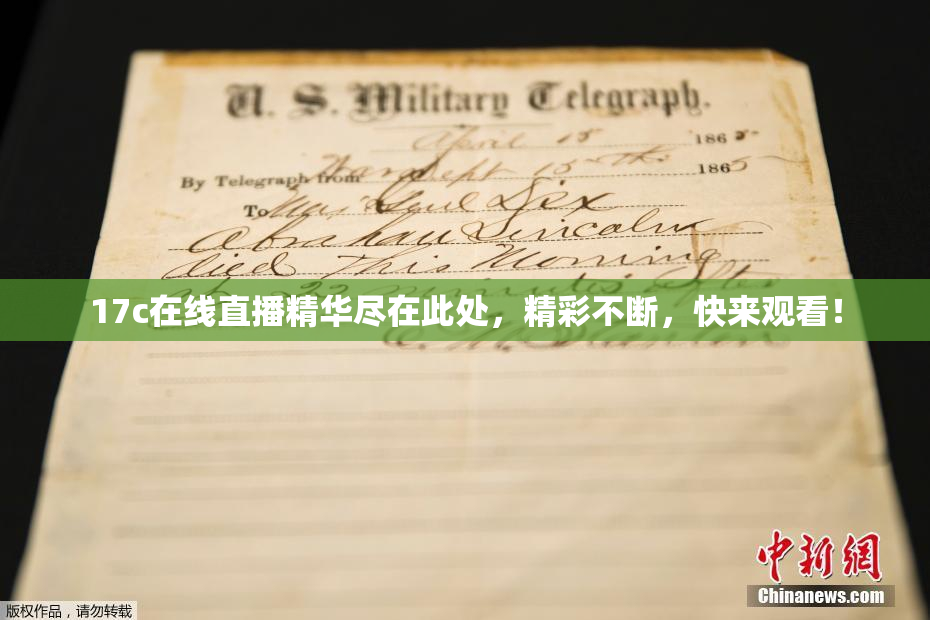 U. S. Military Telegraph.
April 15 1865
By Telegraph from War Dept 15th 1865
To Maj Genl Dix
Abraham Lincoln
died This Morning
at 22 minutes after
17c在线直播精华尽在此处，精彩不断，快来观看！
E. M. Stanton
中新网
Chinanews.com
版权作品，请勿转载